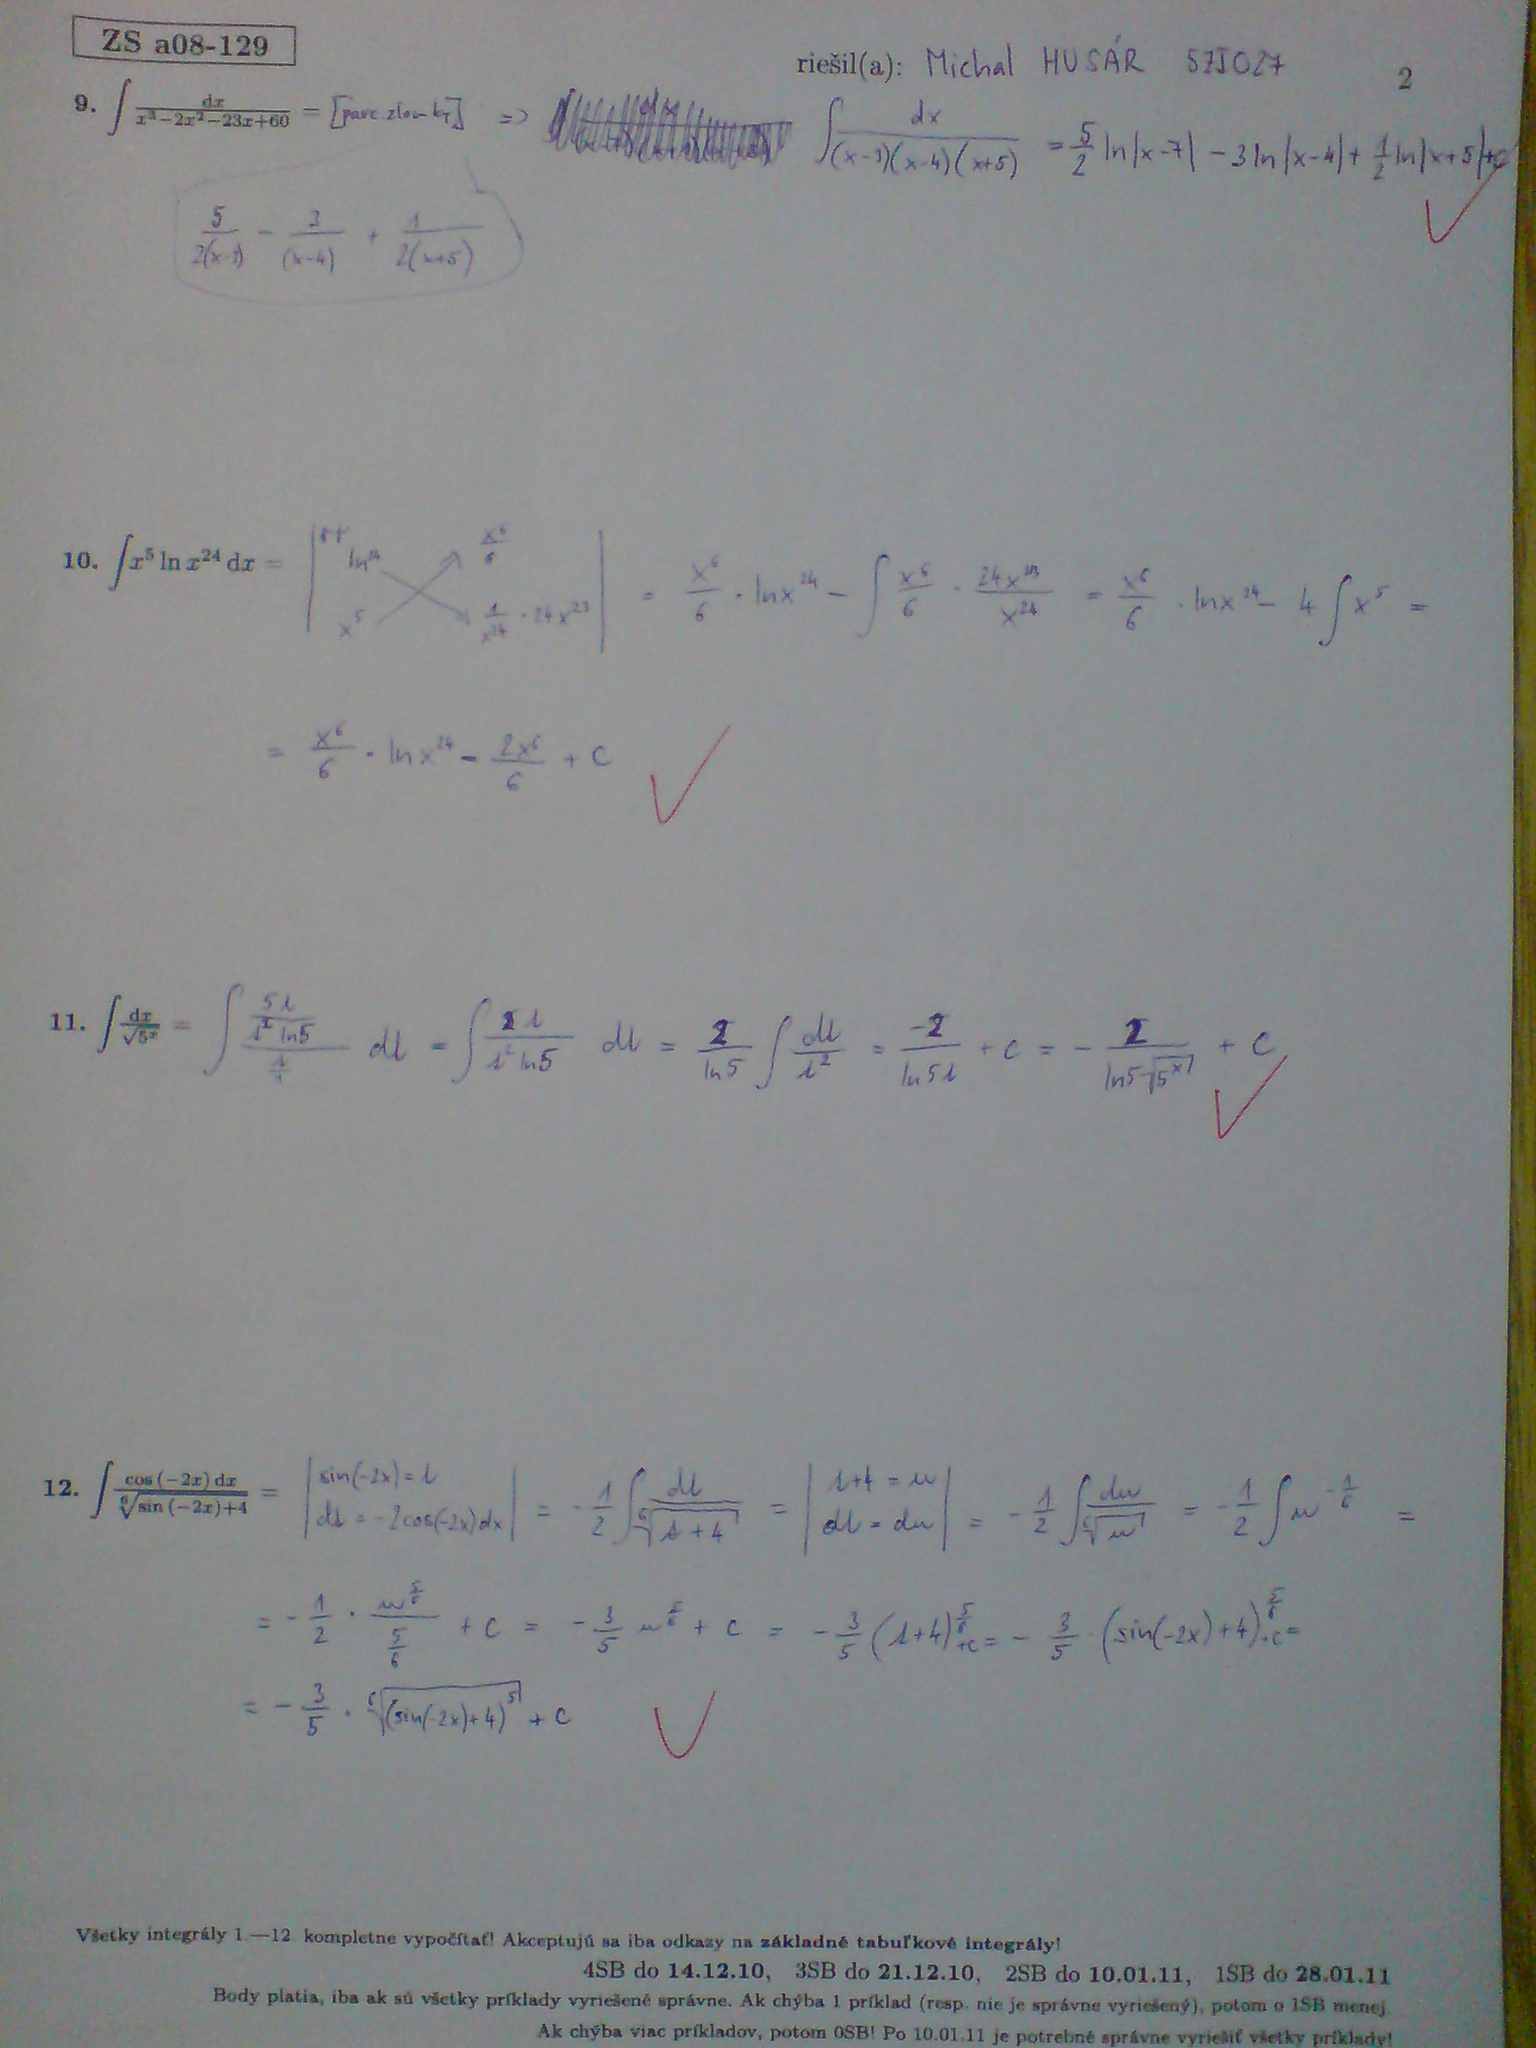 ZS a08-129
riešil(a): Michal HUSÁR 5ZI027
2
9. ∫ dx/(x³−2x²−23x+60) = => ∫ dx/((x-3)(x-4)(x+5)) = 5/2 ln|x-7| - 3 ln|x-4| + 1/2 ln|x+5| + c
5/(2(x-3)) - 3/(x-4) + 1/(2(x+5))
10. ∫ x⁵ ln x²⁴ dx = | ln²⁴ x⁶/6 x⁵ 1/x²⁴ · 24x²³ | = x⁶/6 · lnx²⁴ - ∫ x⁶/6 · 24x²³/x²⁴ = x⁶/6 · lnx²⁴ - 4 ∫ x⁵ =
= x⁶/6 · lnx²⁴ - 2x⁶/6 + c
11. ∫ dx/√5ˣ = ∫ dt = ∫ 2t/(t² ln5) dt = 2/ln5 ∫ dt/t² = -2/(ln5 t) + c = - 2/(ln5 √5ˣ) + c
12. ∫ cos(−2x) dx/⁶√(sin(−2x)+4) = | sin(-2x) = t dt = -2cos(-2x)dx | = -1/2 ∫ dt/⁶√(t+4) = | t+4 = u dt = du | = -1/2 ∫ du/⁶√u = -1/2 ∫ u^(-1/6) =
= -1/2 · u^(5/6)/(5/6) + c = -3/5 u^(5/6) + c = -3/5 (t+4)^(5/6) + c = - 3/5 · (sin(-2x)+4)^(5/6) + c =
= - 3/5 · ⁶√(sin(-2x)+4)⁵ + c
Všetky integrály 1.—12. kompletne vypočítať! Akceptujú sa iba odkazy na základné tabuľkové integrály!
4SB do 14.12.10, 3SB do 21.12.10, 2SB do 10.01.11, 1SB do 28.01.11
Body platia, iba ak sú všetky príklady vyriešené správne. Ak chýba 1 príklad (resp. nie je správne vyriešený), potom o 1SB menej.
Ak chýba viac príkladov, potom 0SB! Po 10.01.11 je potrebné správne vyriešiť všetky príklady!